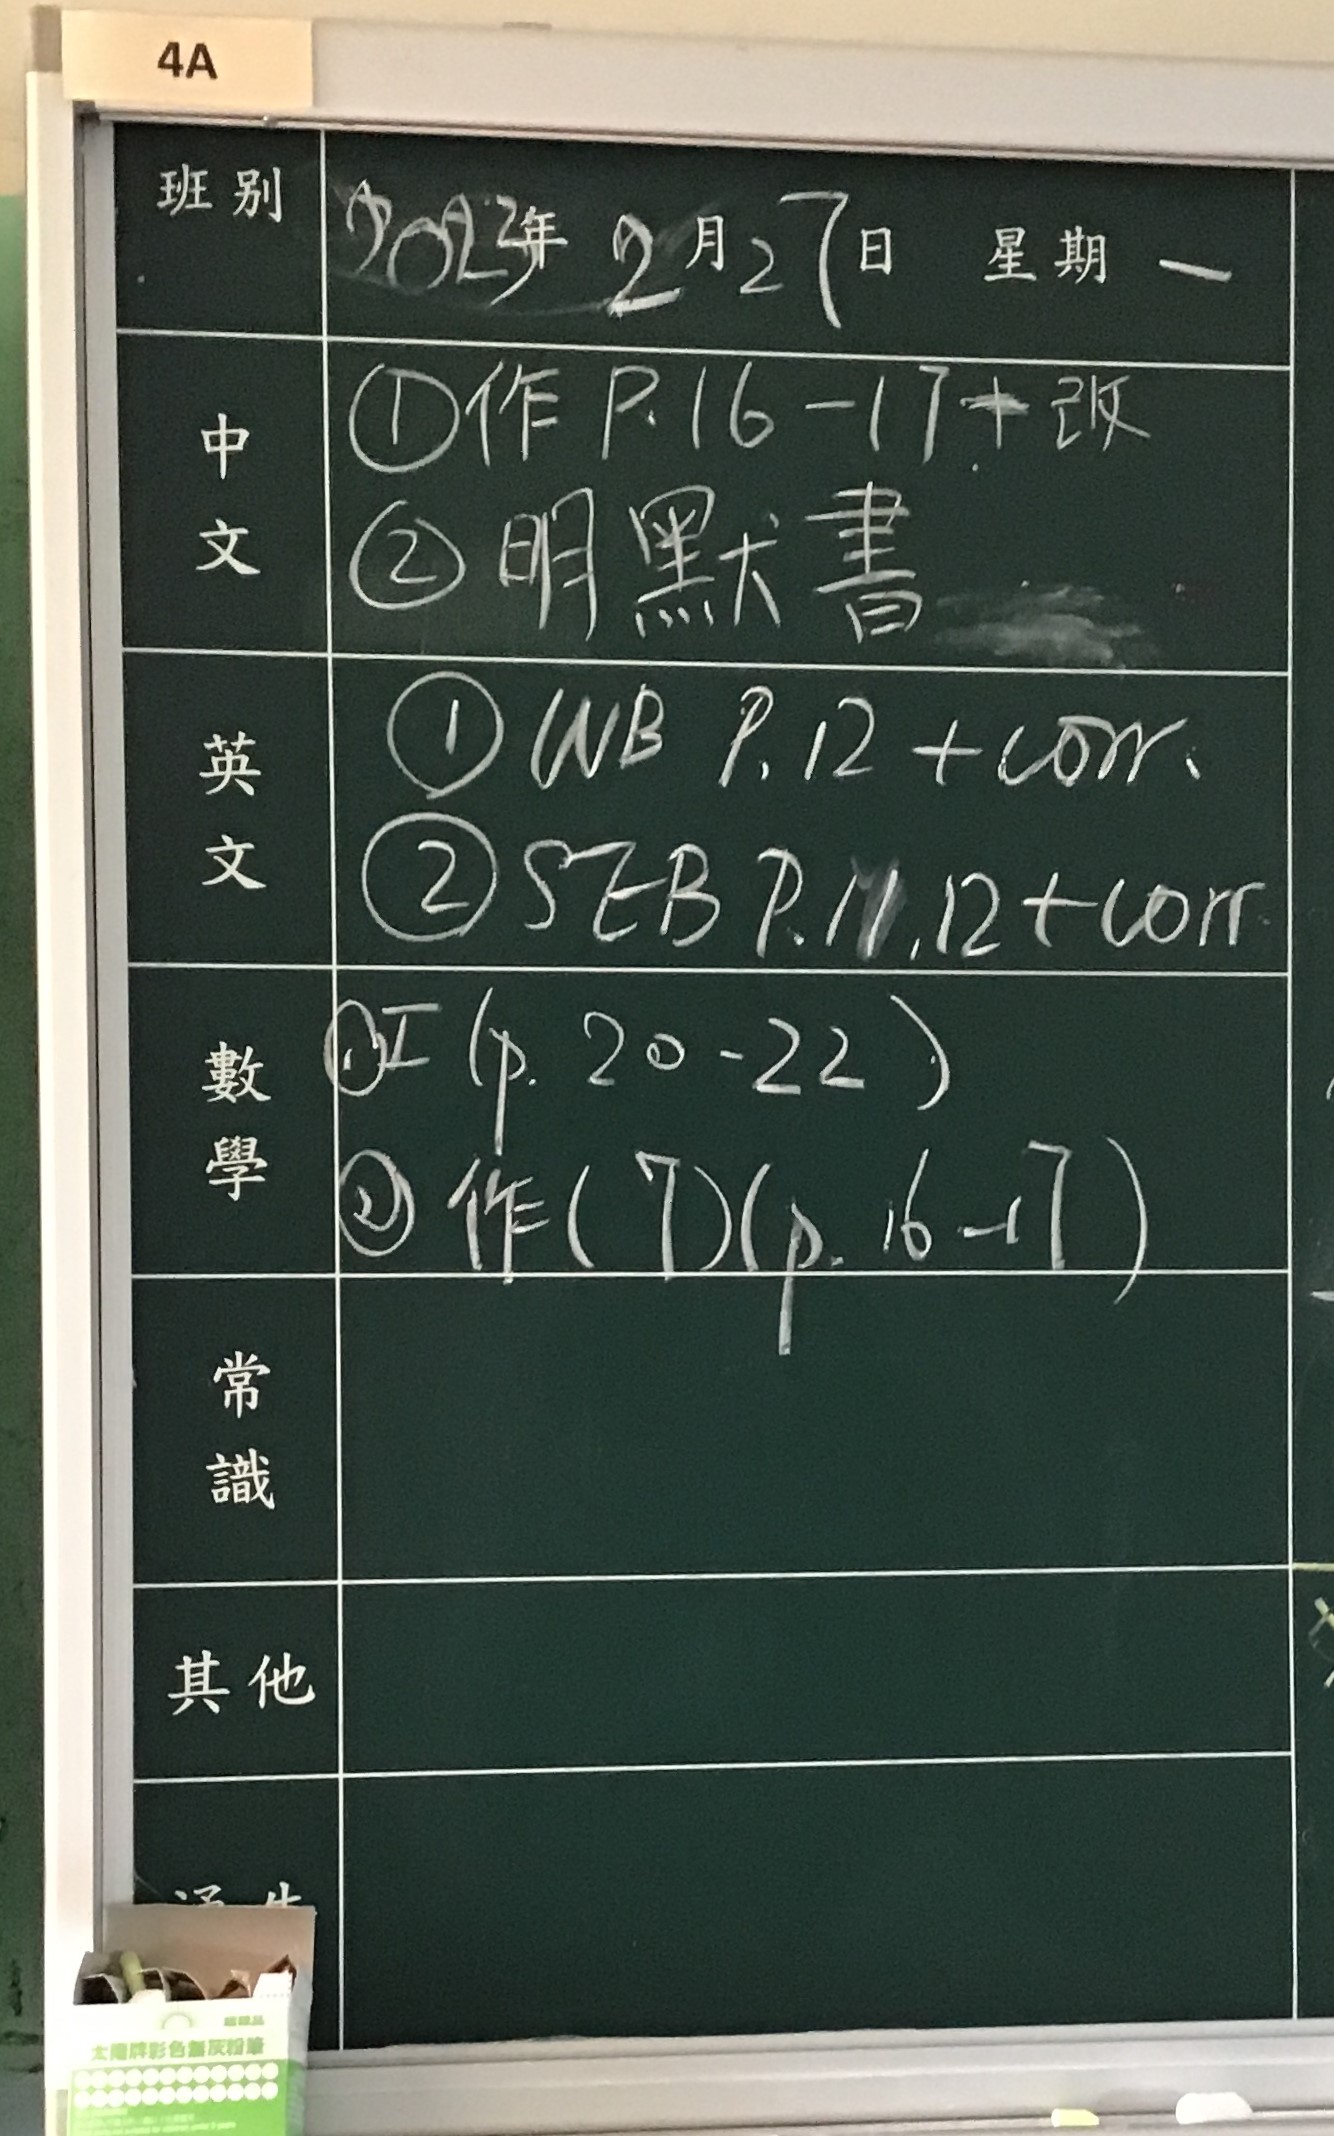 4A
班別
2023年 2月27日 星期一
中文
①作 P.16-17+改
②明默書
英文
① WB P.12 + corr.
② SEB P.11,12 + corr.
數學
①工(p.20-22)
②作(7)(p.16-17)
常識
其他
太陽牌彩色無灰粉筆